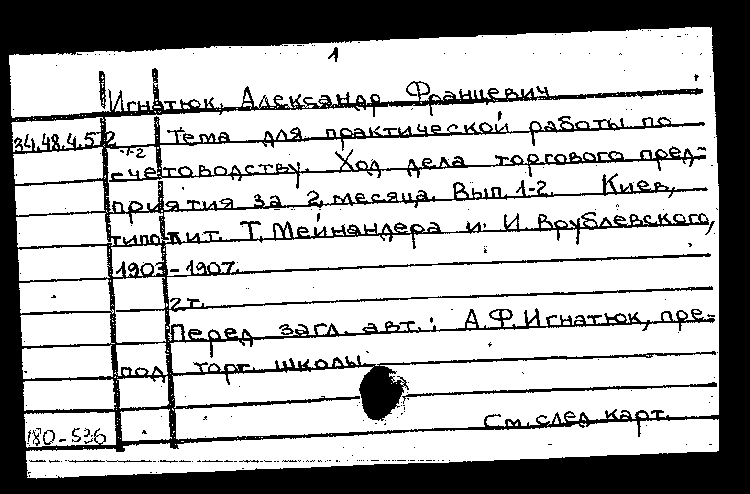 1
Игнатюк, Александр Францевич
34.48.4.572 Тема для практической работы по
1-2
счетоводству. Ход дела торгового пред-
приятия за 2 месяца. Вып. 1-2. Киев,
типо-лит. Т. Мейнандера и И. Врублевского,
1903-1907.
2 т.
Перед загл. авт.: А.Ф. Игнатюк, пре-
под. торг. школы.
См. след карт.
180-536